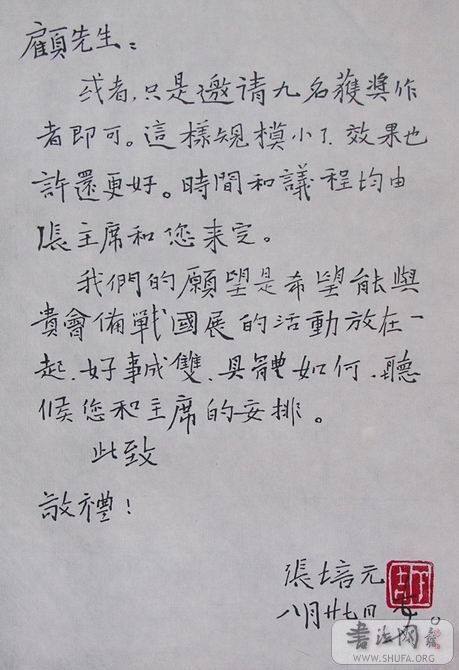 顧先生：
或者,只是邀请九名獲獎作
者即可。這樣規模小了.效果也
許還更好。時間和議程均由
張主席和您来定。
我們的願望是希望能與
貴會備戰國展的活動放在一
起.好事成雙.具體如何.聽
候您和主席的安排。
此致
敬禮！
張培元
八月廿七日
書法网
WWW.SHUFA.ORG